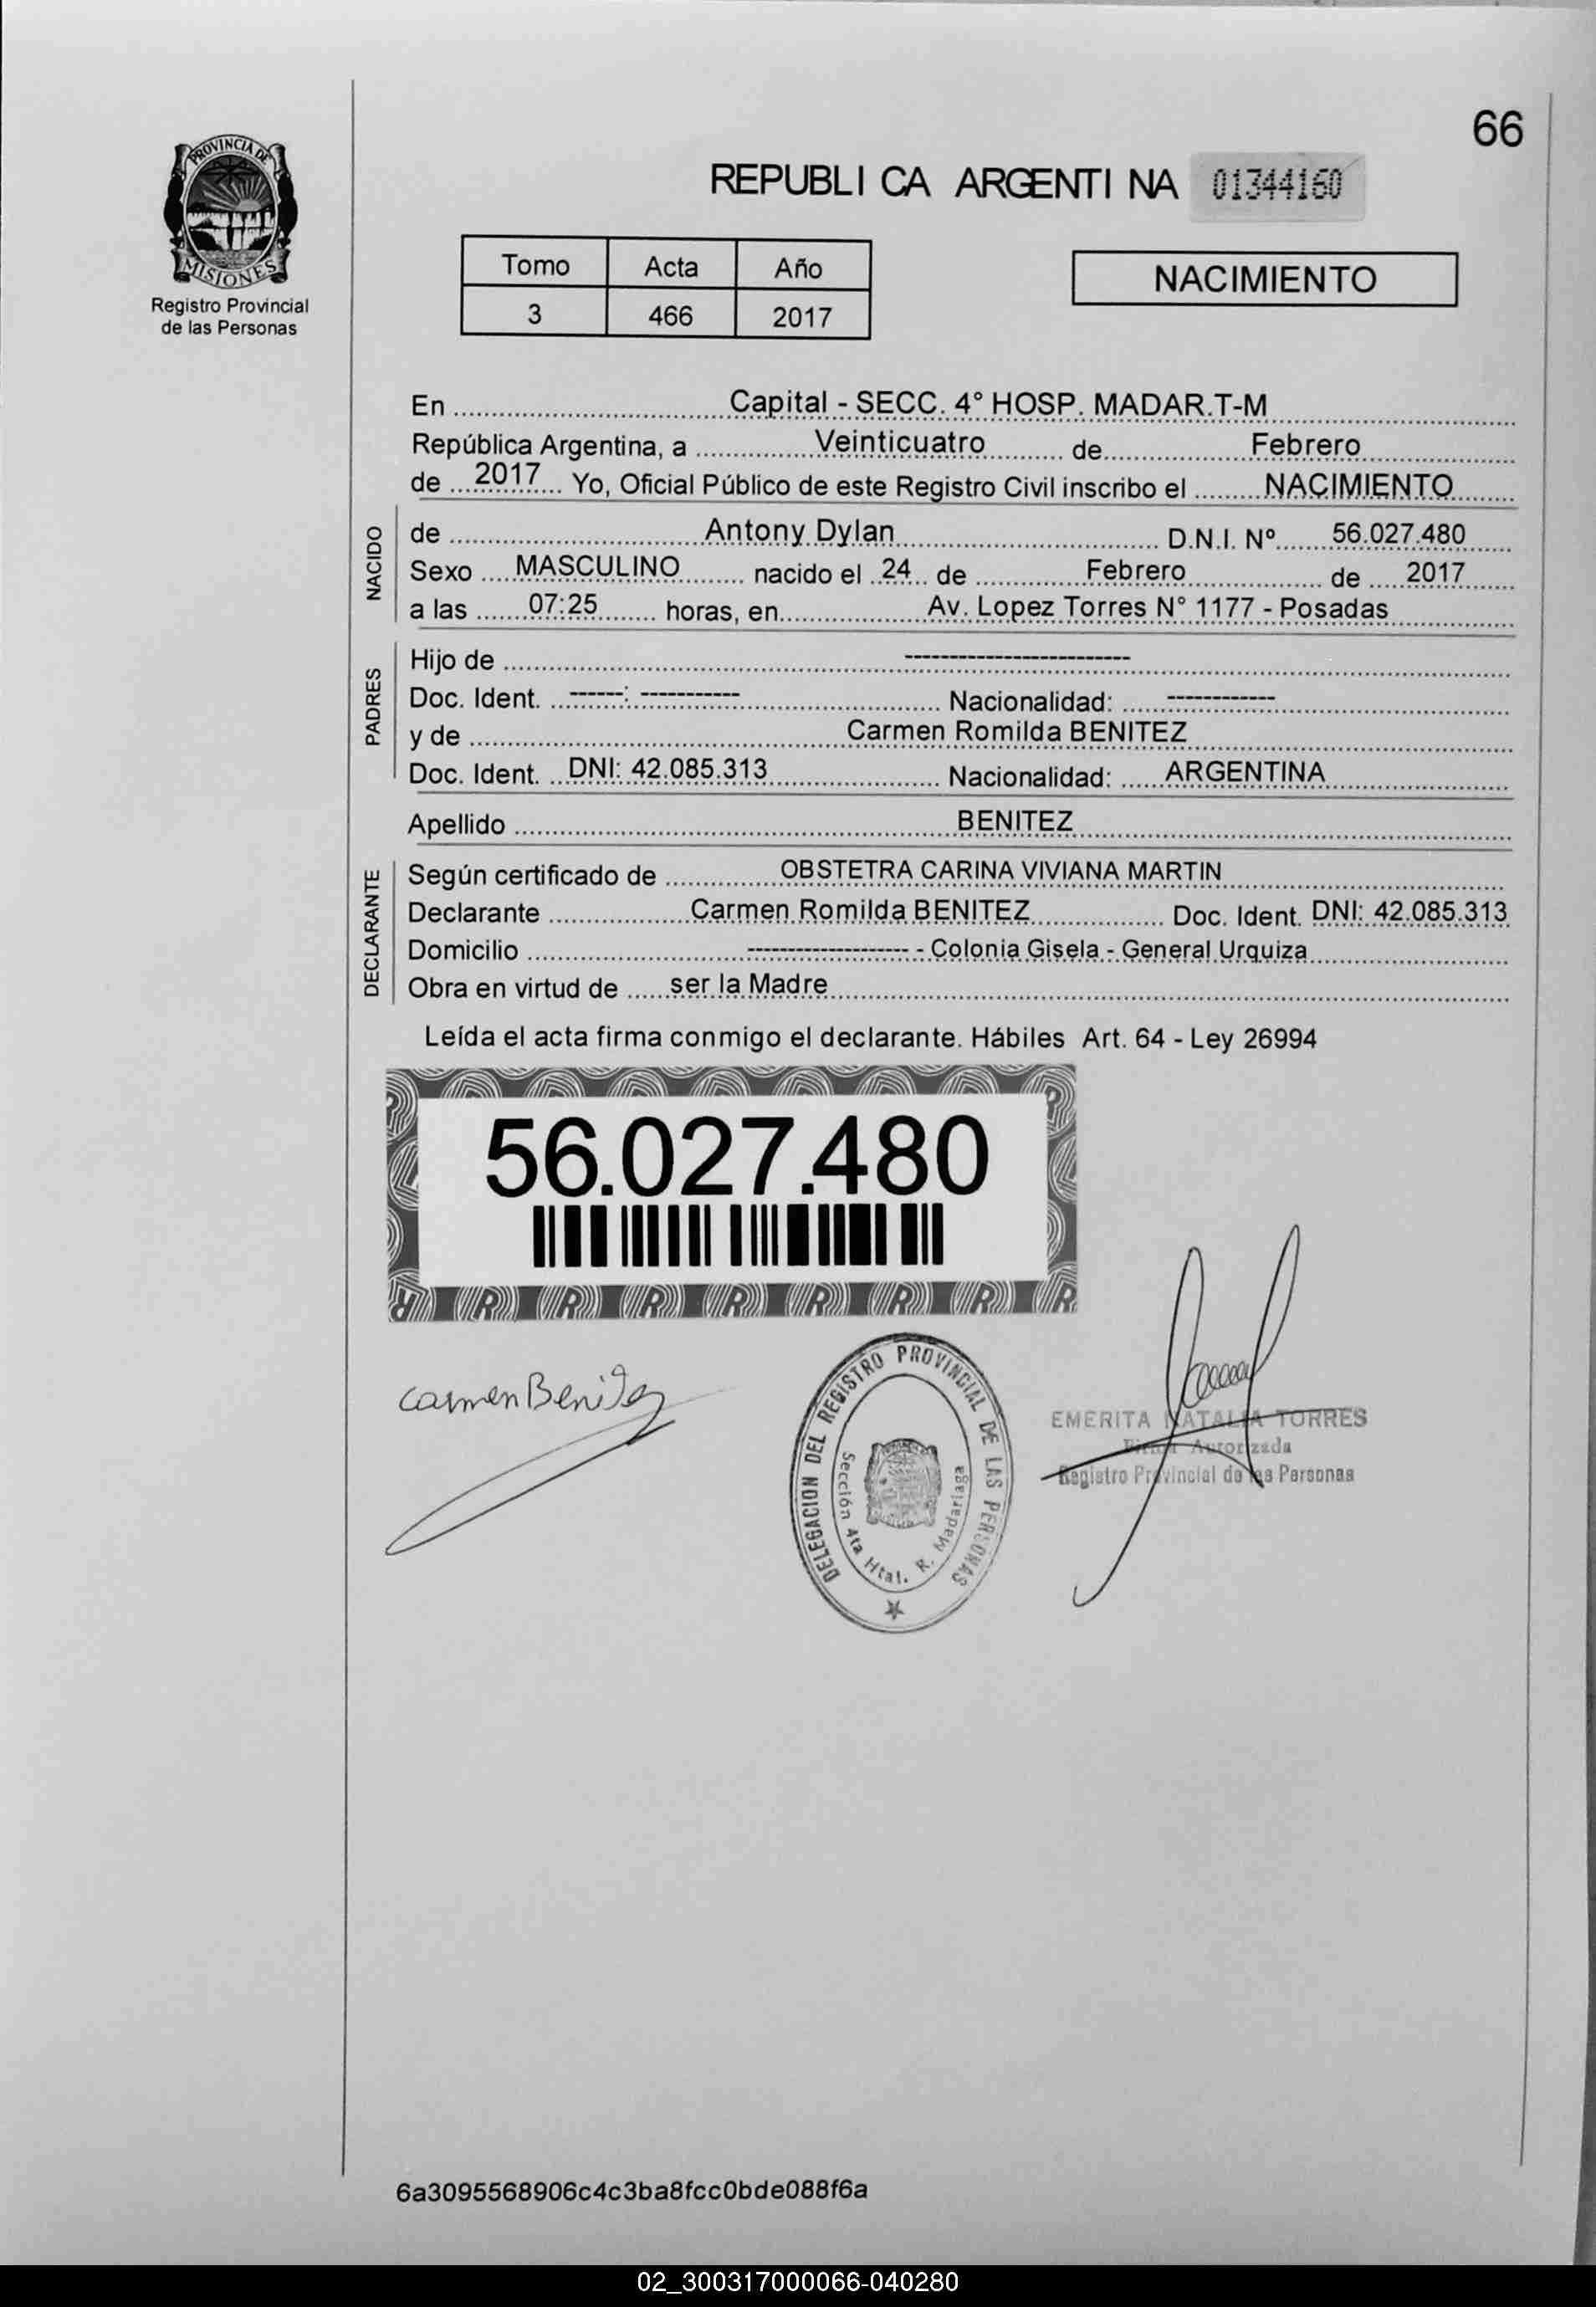 66
PROVINCIA DE
MISIONES
Registro Provincial
de las Personas
REPUBLICA ARGENTINA 01344160
Tomo Acta Año
3 466 2017
NACIMIENTO
En Capital - SECC. 4° HOSP. MADAR.T-M
República Argentina, a Veinticuatro de Febrero
de 2017 Yo, Oficial Público de este Registro Civil inscribo el NACIMIENTO
NACIDO
de Antony Dylan D.N.I. Nº 56.027.480
Sexo MASCULINO nacido el 24 de Febrero de 2017
a las 07:25 horas, en Av. Lopez Torres N° 1177 - Posadas
PADRES
Hijo de -------------------------
Doc. Ident. ------: ----------- Nacionalidad: ------------
y de Carmen Romilda BENITEZ
Doc. Ident. DNI: 42.085.313 Nacionalidad: ARGENTINA
Apellido BENITEZ
DECLARANTE
Según certificado de OBSTETRA CARINA VIVIANA MARTIN
Declarante Carmen Romilda BENITEZ Doc. Ident. DNI: 42.085.313
Domicilio -------------------- - Colonia Gisela - General Urquiza
Obra en virtud de ser la Madre
Leída el acta firma conmigo el declarante. Hábiles Art. 64 - Ley 26994
56.027.480
R R R R R R R R
Carmen Benitez
DELEGACION DEL REGISTRO PROVINCIAL DE LAS PERSONAS
Sección 4ta Htal. R. Madariaga
EMERITA NATALIA TORRES
Firma Autorizada
Registro Provincial de las Personas
6a3095568906c4c3ba8fcc0bde088f6a
02_300317000066-040280